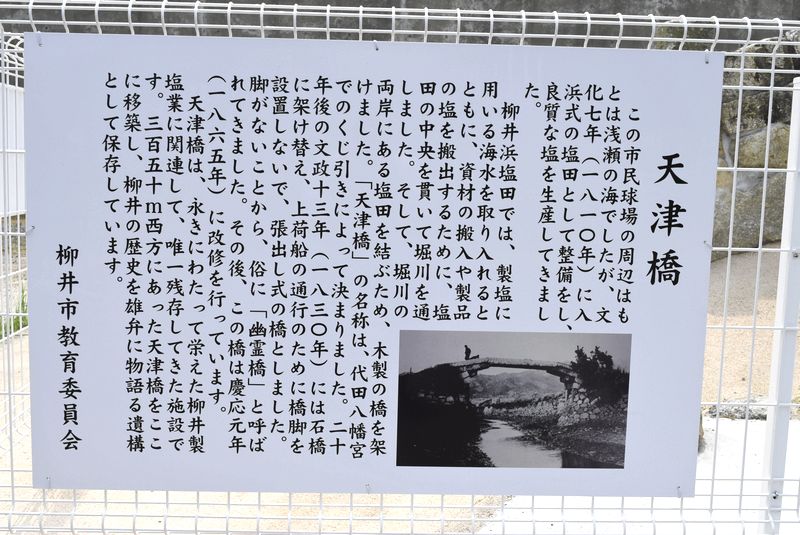 天津橋
この市民球場の周辺はも
とは浅瀬の海でしたが、文
化七年（一八一〇年）に入
浜式の塩田として整備をし、
良質な塩を生産してきまし
た。
柳井浜塩田では、製塩に
用いる海水を取り入れると
ともに、資材の搬入や製品
の塩を搬出するために、塩
田の中央を貫いて堀川を通
しました。そして、堀川の
両岸にある塩田を結ぶため、木製の橋を架
けました。「天津橋」の名称は、代田八幡宮
でのくじ引きによって決まりました。二十
年後の文政十三年（一八三〇年）には石橋
に架け替え、上荷船の通行のために橋脚を
設置しないで、張出し式の橋としました。
脚がないことから、俗に「幽霊橋」と呼ば
れてきました。その後、この橋は慶応元年
（一八六五年）に改修を行っています。
天津橋は、永きにわたって栄えた柳井製
塩業に関連して、唯一残存してきた施設で
す。三百五十ｍ西方にあった天津橋をここ
に移築し、柳井の歴史を雄弁に物語る遺構
として保存しています。
柳井市教育委員会